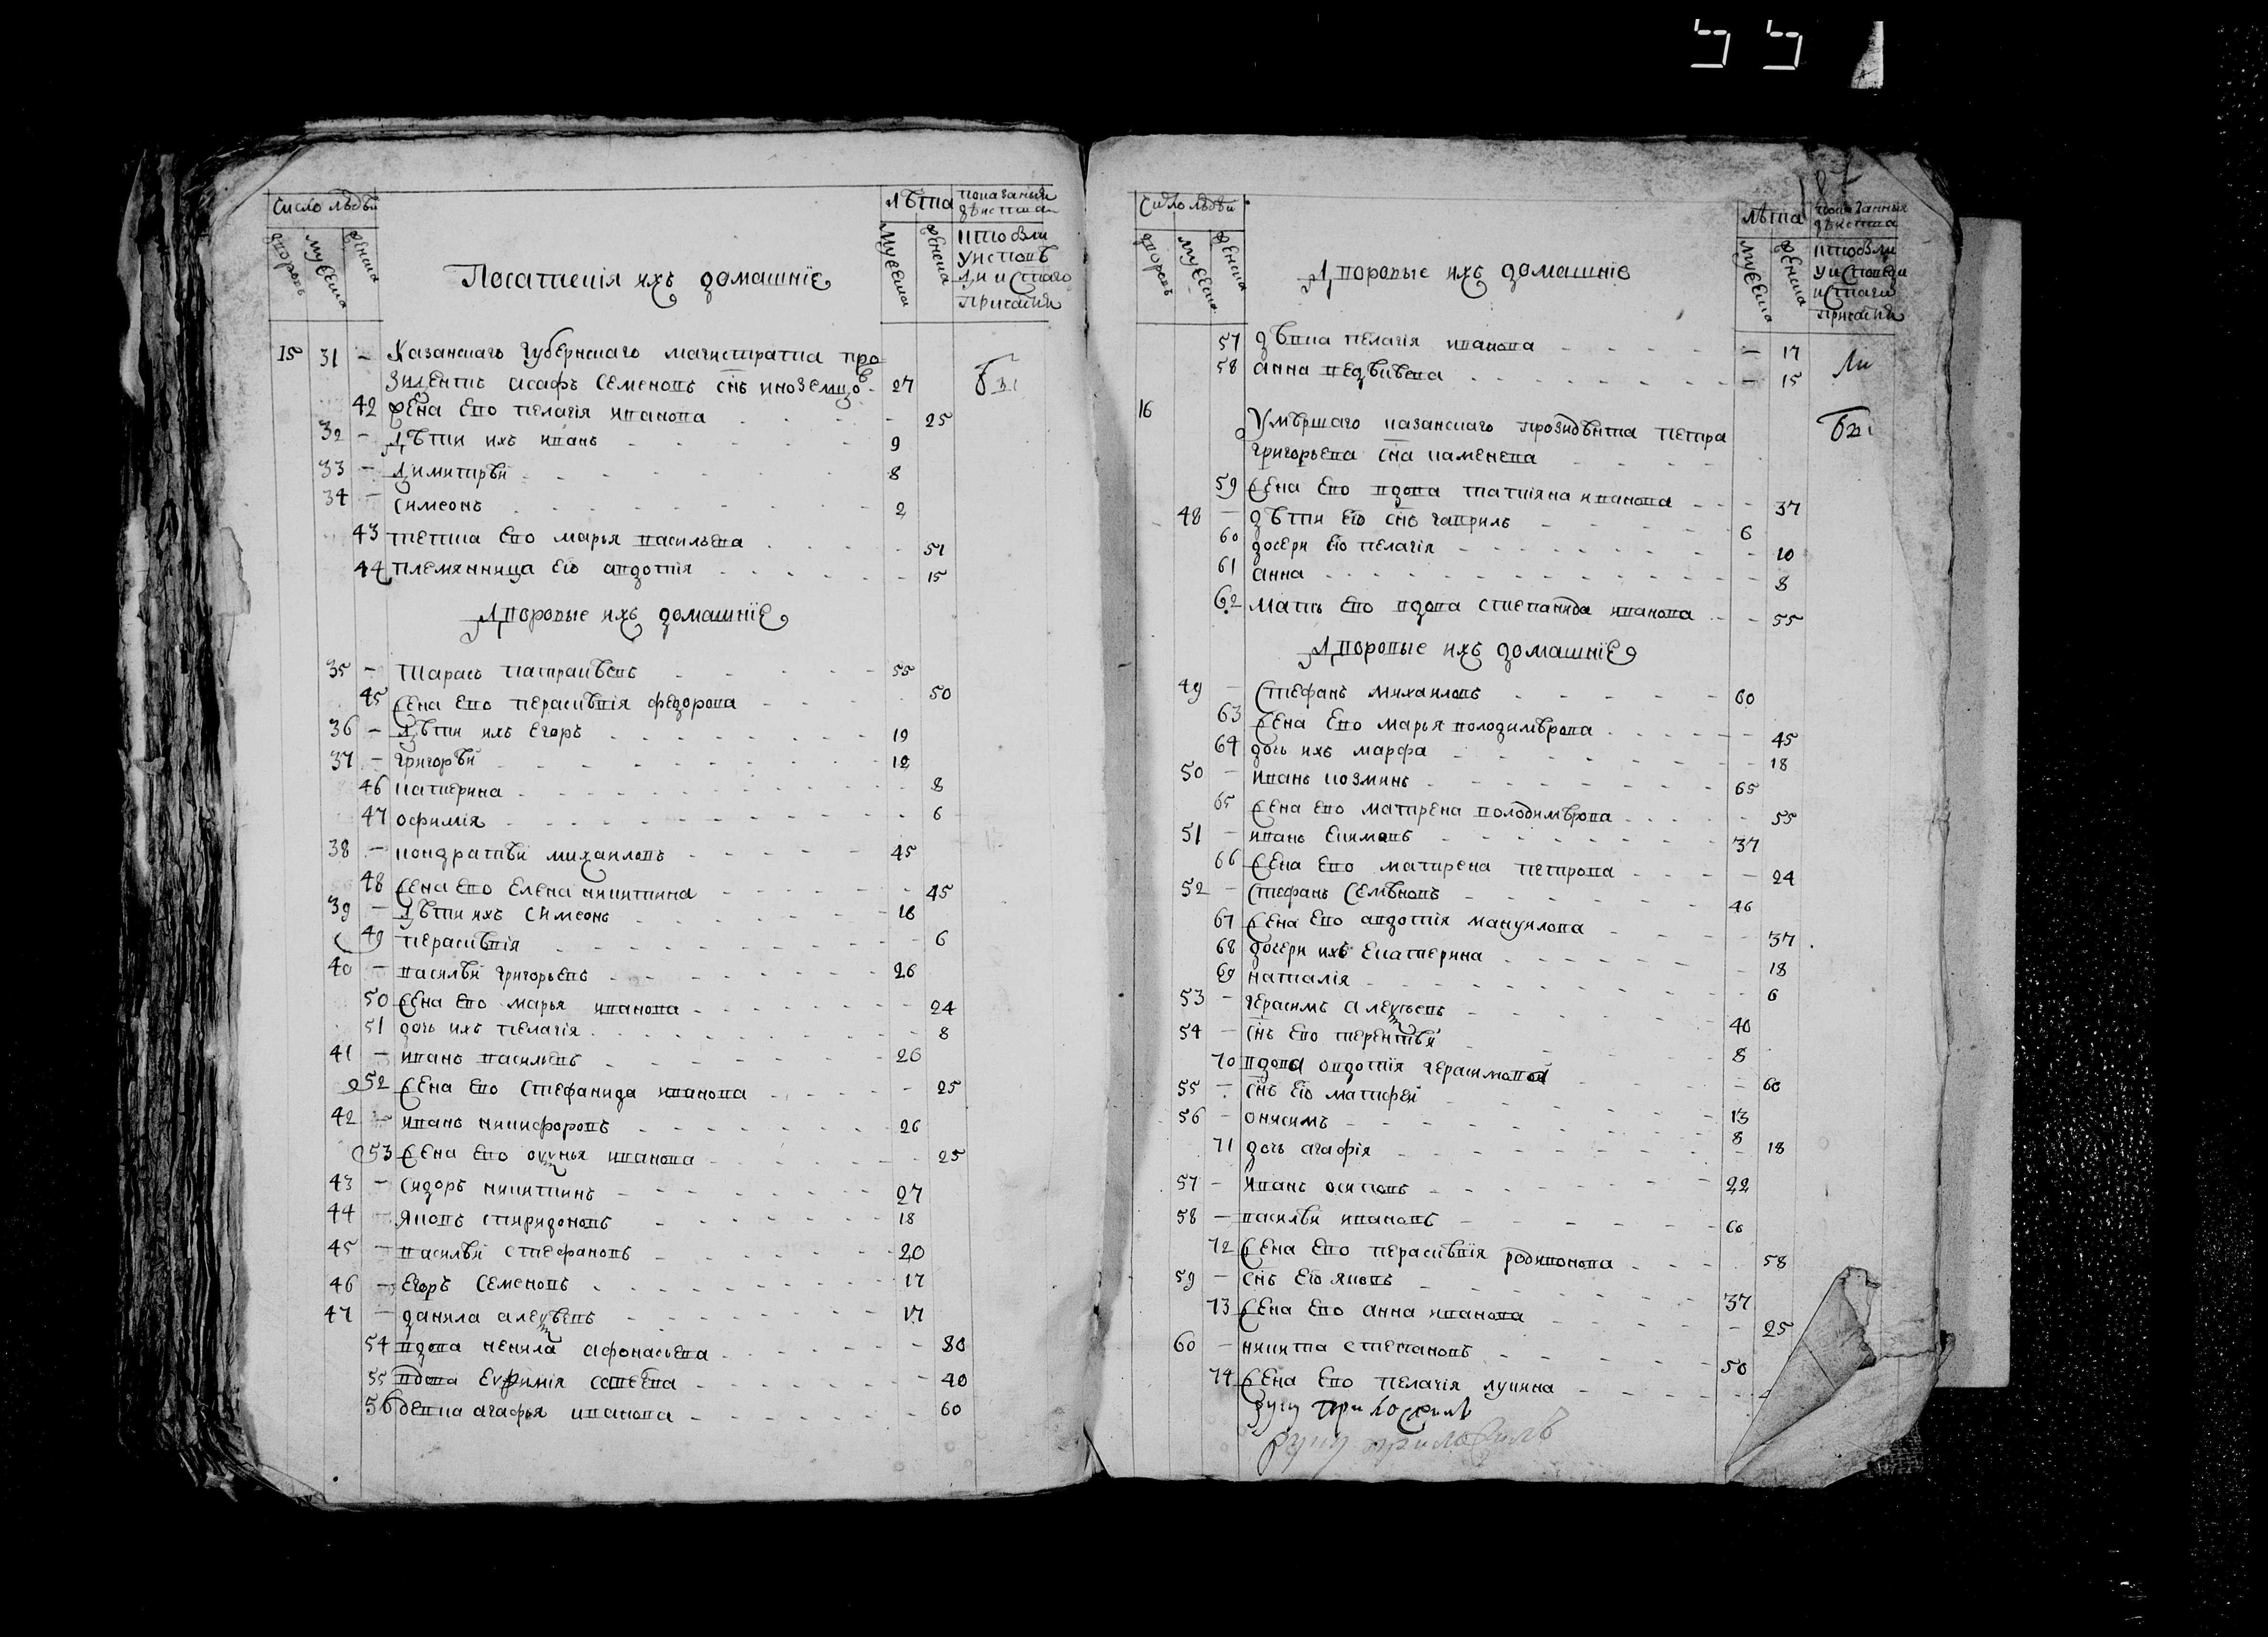 Число людѣй
дворовъ
мужеска
женска
Посатскія ихъ домашніе
лѣта
мужеска
женска
показаныя
дѣйства
кто были
у испов
ди и с̃таго
причастия
15 31 - Казанскаго губернскаго магистрата пре
зидентъ асафъ семеновъ сн̃ъ иноземцов - 27
42 жена ево пелагія иванова - 25
32 - дѣти ихъ иванъ - 9
33 - димитрѣй - 8
34 - симеонъ - 2
43 теща ево марья васильева - 51
44 племянница ево авдотія - 15
Дворовые ихъ домашніе
35 - тарасъ 55
45 жена ево перасковія федорова - 50
36 - дѣти ихъ егоръ - 19
37 - григорѣй - 12
46 катерина - 8
47 офимія - 6
38 - кондратѣй михаиловъ - 45
48 жена ево елена никитина - 45
39 - дѣти ихъ симеонъ - 16
49 перасковія - 6
40 - василѣй григорьевъ - 26
50 жена ево марья иванова - 24
51 дочь ихъ пелагія - 8
41 - иванъ василевъ - 26
52 жена ево стефанида иванова - 25
42 - иванъ никифоровъ - 26
53 жена ево иванова - 25
43 - сидоръ никитинъ - 27
44 яковъ спиридоновъ - 18
45 - василѣй стефановъ - 20
46 - егоръ семеновъ - 17
47 - данила алексѣевъ - 17
54 вдова ненила афонасьева - 80
55 вдова евфимія - 40
56 девка агафья иванова - 60
Число людѣй
дворовъ
мужеска
женска
Дворовые ихъ домашніе
лѣта
мужеска
женска
показанныя
дѣйства
кто были
у исповѣди
и стаго
причастия
57 дѣвка пелагія иванова - 17
58 анна - 15
16 Умѣршаго казанскаго прозидѣнта петра
григорьева сн̃а каменева
59 жена ево вдова татіяна иванова - 37
48 - дѣти ево сн̃ъ гаврилъ - 6
60 дочери ево пелагія - 10
61 анна - 8
62 мать ево вдова степанида иванова - 55
Дворовые ихъ домашніе
49 - стефанъ михаиловъ - 60
63 жена ево марья володимѣрова - 45
64 дочь ихъ марфа - 18
50 - иванъ козминъ - 65
65 жена ево матрена володимѣрова - 55
51 - иванъ екимовъ - 37
66 жена ево матрена петрова - 24
52 - стефанъ семѣновъ - 46
67 жена ево авдотія мануилова - 37
68 дочери ихъ екатерина - 18
69 наталія - 6
53 - герасимъ алексѣевъ - 40
54 - сн̃ъ ево терентѣй - 8
70 вдова овдотія герасимова - 60
55 - сн̃ъ ево матфей - 13
56 - онисимъ - 8
71 дочь агафія - 18
57 - иванъ осиповъ - 22
58 - василѣй ивановъ - 60
72 жена ево перасковія родионова - 58
59 - сн̃ъ ево яковъ - 37
73 жена ево анна иванова - 25
60 - никита степановъ - 50
74 жена ево пелагія лукина
руку приложилъ
руку приложилъ